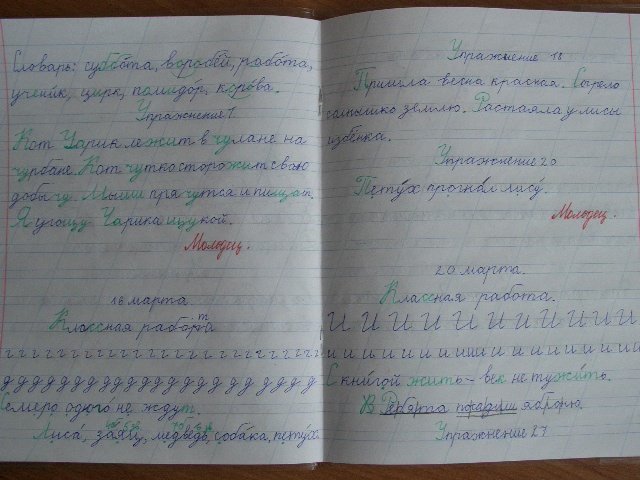 Словарь: суббота, воробей, работа,
ученик, цирк, помидор, корова.
Упражнение 1
Кот Чарик лежит в чулане на
чурбане. Кот чутко сторожит свою
добычу. Мыши прячутся и пищат.
Я угощу Чарика щукой.
Молодец.
16 марта
Классная работа
г г г г г г г г г г г г г г г г г г г г г г г
д д д д д д д д д д д д д д д д д д д д
Семеро одного не ждут.
Лиса, заяц, медведь, собака, петух.
Упражнение 18
Пришла весна красная. Согрело
солнышко землю. Растаяла у лисы
избёнка.
Упражнение 20
Петух прогнал лису.
Молодец.
20 марта.
Классная работа.
И И И И И И И И И И И И И
и и и и и и и и и и и и и и и и
С книгой жить – век не тужить.
Ребята
Упражнение 27